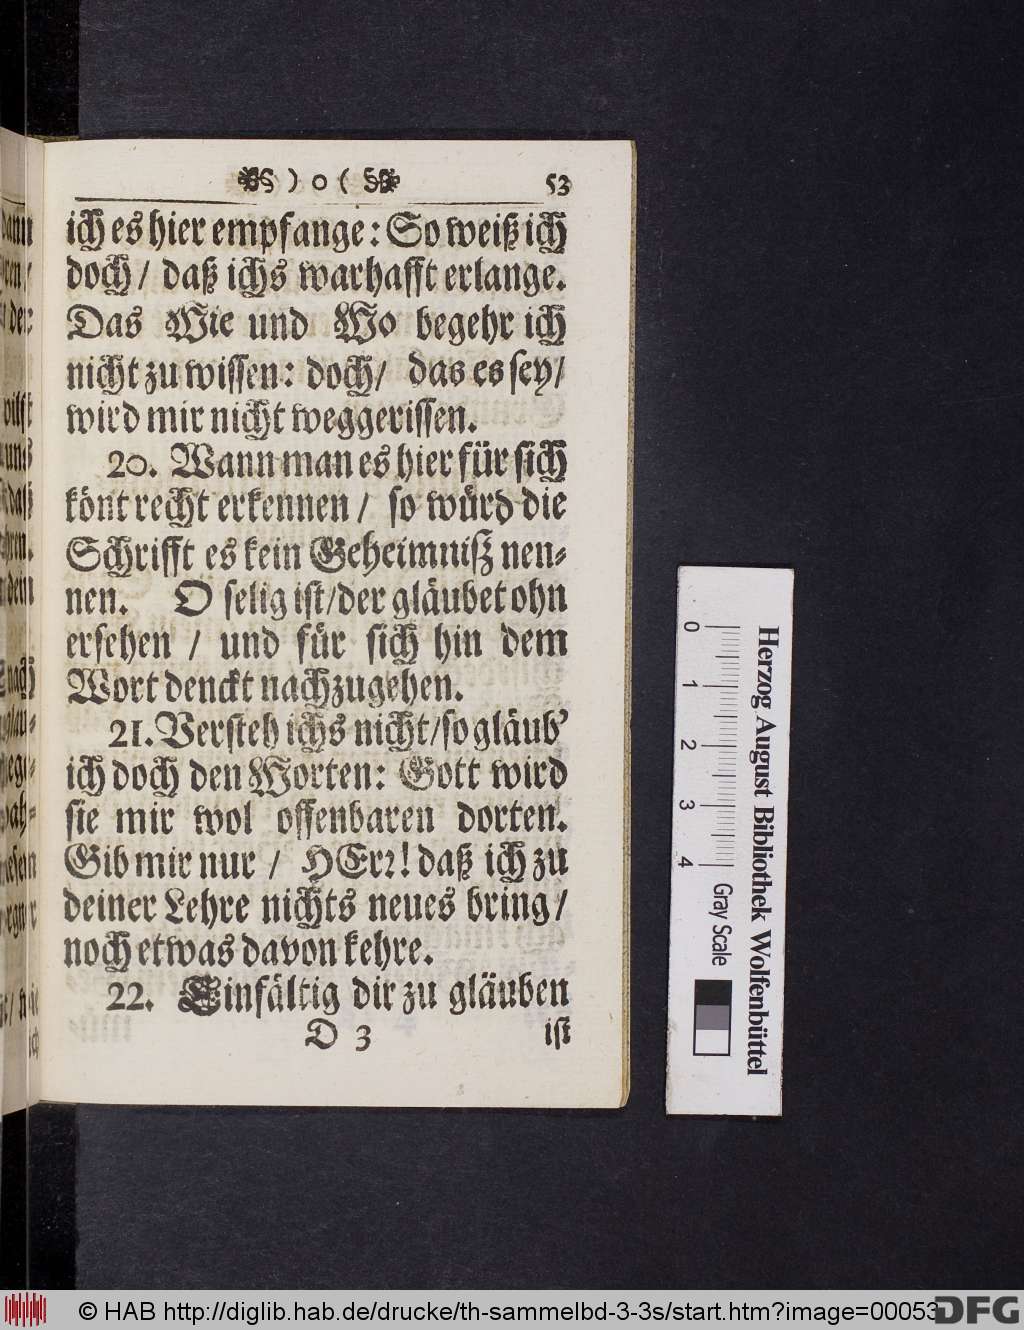 ) o ( 53
ich es hier empfange: So weiß ich
doch / daß ichs warhafft erlange.
Das Wie und Wo begehr ich
nicht zu wissen: doch / das es sey /
wird mir nicht weggerissen.
20. Wann man es hier für sich
könt recht erkennen / so würd die
Schrifft es kein Geheimniß nen-
nen. O selig ist / der gläubet ohn
ersehen / und für sich hin dem
Wort denckt nachzugehen.
21. Versteh ichs nicht / so gläub'
ich doch den Worten: Gott wird
sie mir wol offenbaren dorten.
Gib mir nur / HErr! daß ich zu
deiner Lehre nichts neues bring /
noch etwas davon kehre.
22. Einfältig dir zu gläuben
D 3 ist
0 1 2 3 4 Gray Scale
Herzog August Bibliothek Wolfenbüttel
© HAB http://diglib.hab.de/drucke/th-sammelbd-3-3s/start.htm?image=00053
DFG